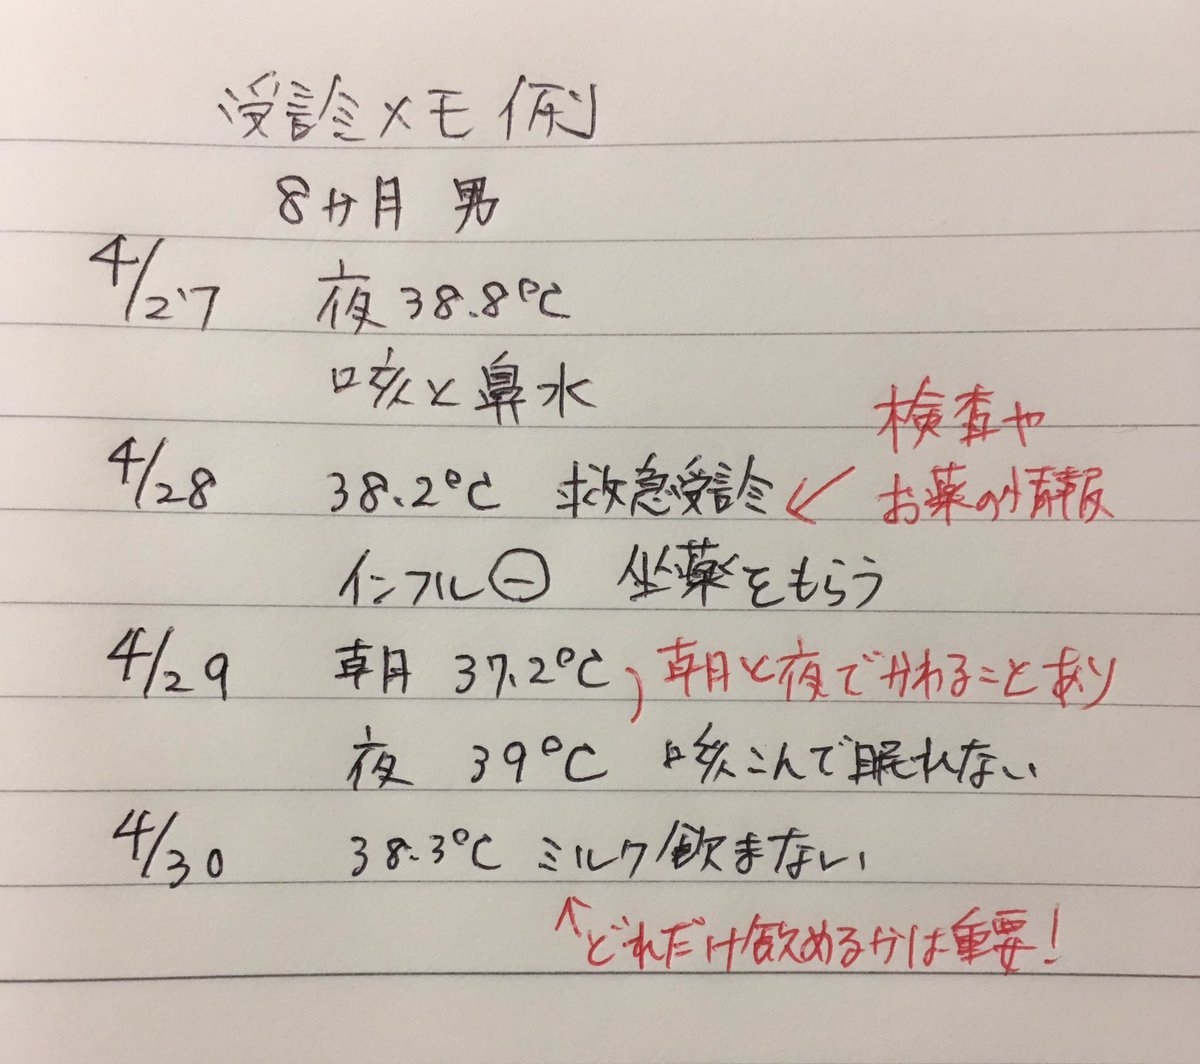 受診メモ 例
8ヶ月 男
4/27 夜 38.8℃
咳と鼻水
検査や
4/28 38.2℃ 救急受診 ← お薬の情報
インフル⊖ 坐薬をもらう
4/29 朝 37.2℃ 朝と夜でかわることあり
夜 39℃ 咳こんで眠れない
4/30 38.3℃ ミルク飲まない
↑どれだけ飲めるかは重要!